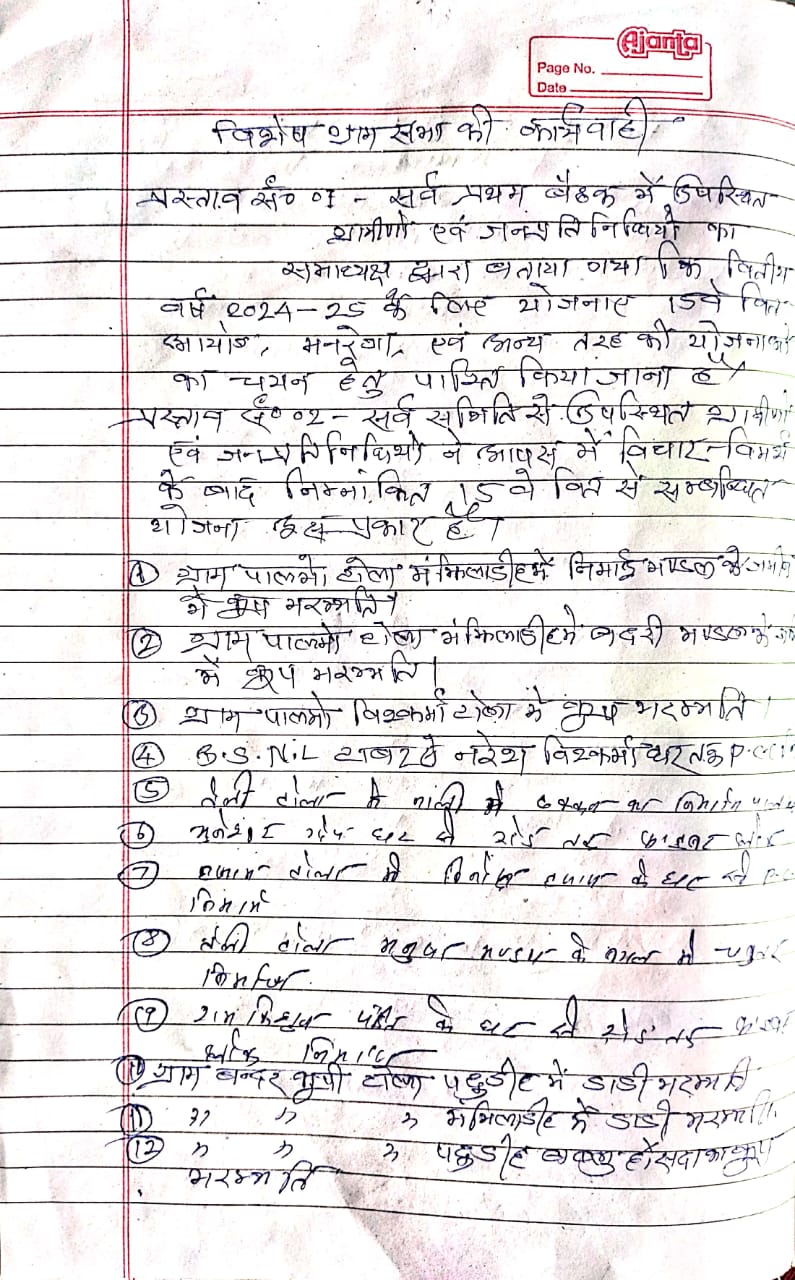 Ajanta
Page No.
Date
विशेष ग्राम सभा की कार्यवाही
प्रस्ताव सं० 01 - सर्व प्रथम बैठक में उपस्थित
ग्रामीणो एवं जनप्रतिनिधियो का
सभाध्यक्ष द्वारा बताया गया कि वितीय
वर्ष 2024-25 के लिए योजनाए 15वे वित
आयोग, मनरेगा, एवं अन्य तरह की योजनाओ
का चयन हेतु पारित किया जाना है।
प्रस्ताव सं० 02 - सर्व समिति से उपस्थित ग्रामीणो
एवं जनप्रतिनिधियो ने आपस में विचार-विमर्श
के बाद निम्नांकित 15 वे वित से सम्बन्धित
योजना इस प्रकार है।
① ग्राम पालमो टोला मंझिलाडीह में निमाई मण्डल के जमीन
में कूप मरम्मति।
② ग्राम पालमो टोला मंझिलाडीह में बदरी मण्डल के
में कूप मरम्मति।
③ ग्राम पालमो विश्कर्मा टोला में कूप मरम्मति।
④ B.S.N.L टावर से नरेश विश्कर्मा घर तक P.C.C
⑤ तेली टोला में नाली में ढक्कन का निर्माण
⑥ घर से रोड तक
⑦ टोला में के घर से P.C
निमार्ण
⑧ तेली टोला मण्डल के बगल में चबुतरा
निर्माण
⑨ के घर से रोड तक
निमार्ण
⑩ ग्राम बन्दरकुपी टोला पहुडीह में डाडी मरम्मति
⑪ " " " मंझिलाडीह में डाडी मरम्मति
⑫ " " " पहुडीह का कूप
मरम्मति